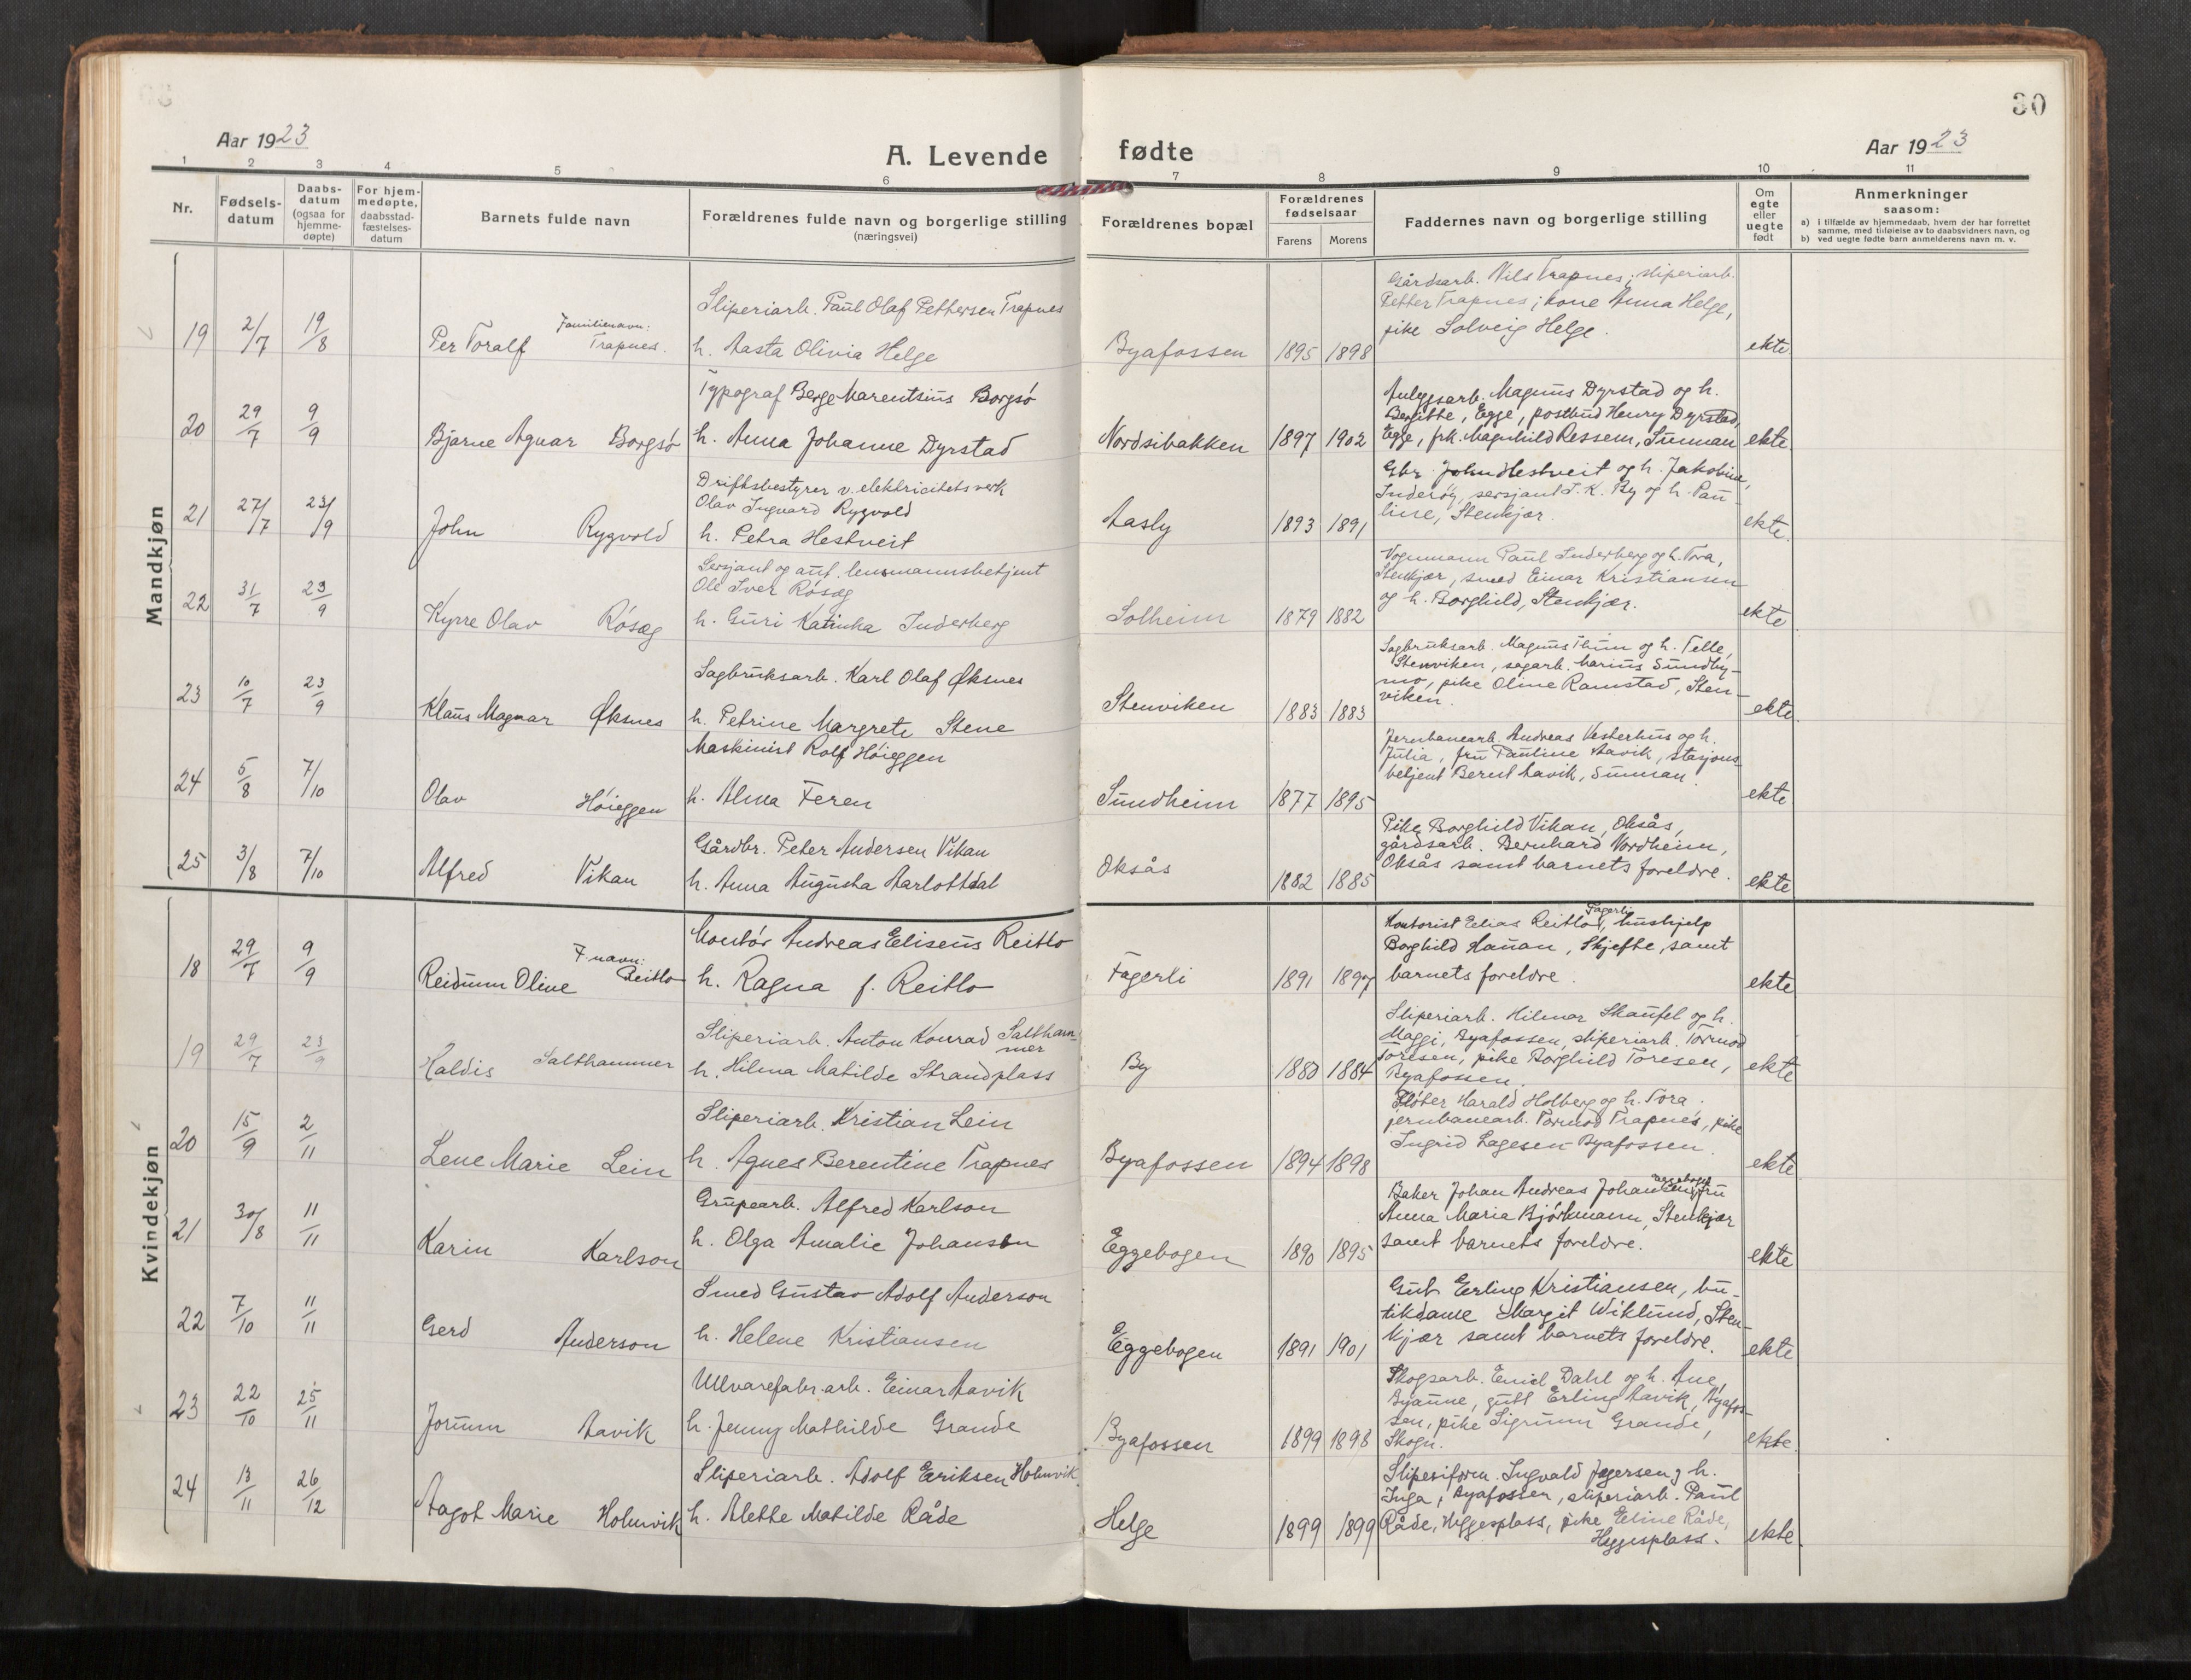 30
Aar 1923
A. Levende fødte
Aar 1923
1 2 3 4 5 6 7 8 9 10 11
Nr.
Fødsels-
datum
Daabs-
datum
(ogsaa for
hjemme-
døpte)
For hjem-
medøpte,
daabsstad-
fæstelses-
datum
Barnets fulde navn
Forældrenes fulde navn og borgerlige stilling
(næringsvei)
Forældrenes bopæl
Forældrenes
fødselsaar
Farens Morens
Faddernes navn og borgerlige stilling
Om
egte
eller
uegte
født
Anmerkninger
saasom:
a) i tilfælde av hjemmedaab, hvem der har forrettet
samme, med tilføielse av to daabsvidners navn, og
b) ved uegte fødte barn anmelderens navn m. v.
Mandkjøn
19 2/7 19/8
Per Toralf Familienavn: Trapnes.
Sliperiarb. Paul Olaf Pettersen Trapnes
h. Aasta Olivia Helge
Byafossen 1895 1898
Gårdsarb. Nils Trapnes; sliperiarb.
Petter Trapnes; kone Anna Helge,
pike Solveig Helge.
ekte
20 29/7 9/9
Bjarne Agnar Borgsø
Typograf Berge Marentsius Borgsø
h. Anna Johanne Dyrstad
Nordsibakken 1897 1902
Anleggsarb. Magnus Dyrstad og h.
Bergitte, Egge, postbud Henry Dyrstad,
Egge, frk. Magnhild Ressem, Sunnan
ekte
21 27/7 23/9
John Rygvold
Driftsbestyrer v. elektricitetsverk
Olav Ingvard Rygvold
h. Petra Hestveit
Aasly 1893 1891
Gbr. John Hestveit og h. Jakobine,
Inderøy, sersjant J. K. By og h. Pau-
line, Stenkjær.
ekte.
22 31/7 23/9
Kyrre Olav Røsæg
Sersjant og aut. lensmannsbetjent
Ole Iver Røsæg
h. Guri Katinka Inderberg
Solheim 1879 1882
Vognmann Paul Inderberg og h. Tora,
Stenkjær, smed Einar Kristiansen
og h. Borghild, Stenkjær.
ekte
23 10/7 23/9
Klaus Magnar Øksnes
Sagbruksarb. Karl Olaf Øksnes
h. Petrine Margrete Stene
Stenviken 1883 1883
Sagbruksarb. Magnus og h.
Stenviken, sagarb. Marius Sundby-
mo, pike Oline Ramstad, Sten-
viken.
ekte
24 5/8 7/10
Olav Høieggen
Maskinist Rolf Høieggen
h. Alma Feren
Sundheim 1877 1895
Jernbanearb. Andreas Vesterhus og h.
Julia, fru Pauline Aavik, stasjons-
betjent Bernt Aavik, Sunnan.
ekte
25 3/8 7/10
Alfred Vikan
Gårdbr. Peter Andersen Vikan
h. Anna Augusta Aarlottdal
Oksås 1882 1885
Pike Borghild Vikan, Oksås,
gårdsarb. Bernhard Nordheim,
Oksås samt barnets foreldre.
ekte
Kvindekjøn
18 29/7 9/9
Reidunn Oline F. navn: Reitlo
Montør Andreas Eliseus Reitlo
h. Ragna f. Reitlo
Fagerli 1891 1897
Kontorist Elias Reitlo, Fagerli, hushjelp
Borghild Hanan, Skjefte, samt
barnets foreldre.
ekte
19 29/7 23/9
Haldis Salthammer
Sliperiarb. Anton Konrad Saltham-
mer
h. Hilma Matilde Strandplass
By 1880 1884
Sliperiarb. Hilmar Skaufel og h.
Maggi, Byafossen, sliperiarb. Tormod
Toresen, pike Borghild Toresen,
Byafossen.
ekte
20 15/9 2/11
Lene Marie Lein
Sliperiarb. Kristian Lein
h. Agnes Berentine Trapnes
Byafossen 1894 1898
Fløter Harald Holberg og h. Tora.
jernbanearb. Tormod Trapnes, pike
Ingrid Lagesen Byafossen.
ekte
21 30/8 11/11
Karin Karlson
Grupearb. Alfred Karlson
h. Olga Amalie Johansen
Eggebogen 1890 1895
Baker Johan Andreas Johansen, Eggebogen, fru
Anna Maria Bjørkmann, Stenkjær
samt barnets foreldre.
ekte
22 7/10 11/11
Gerd Anderson
Smed Gustav Adolf Anderson
h. Helene Kristiansen
Eggebogen 1891 1901
Gut Erling Kristiansen, bu-
tikdame Margit Wiklund, Sten-
kjær samt barnets foreldre.
ekte
23 22/10 25/11
Jorunn Aavik
Ullvarefabr.arb. Einar Aavik
h. Jenny Mathilde Grande
Byafossen 1899 1898
Skogsarb. Emil Dahl og h. Ane,
Byaunne, gutt Erling Aavik, Byafos-
sen, pike Sigrunn Grande,
Skogn.
ekte
24 13/11 26/12
Aagot Marie Holmvik
Sliperiarb. Adolf Eriksen Holmvik
h. Alette Matilde Råde
Helge 1899 1899
Sliperiform. Ingvald Jægersen og h.
Inga, Byafossen, sliperiarb. Paul
Råde, Heggesplass, pike Eline Råde,
Heggesplass.
ekte